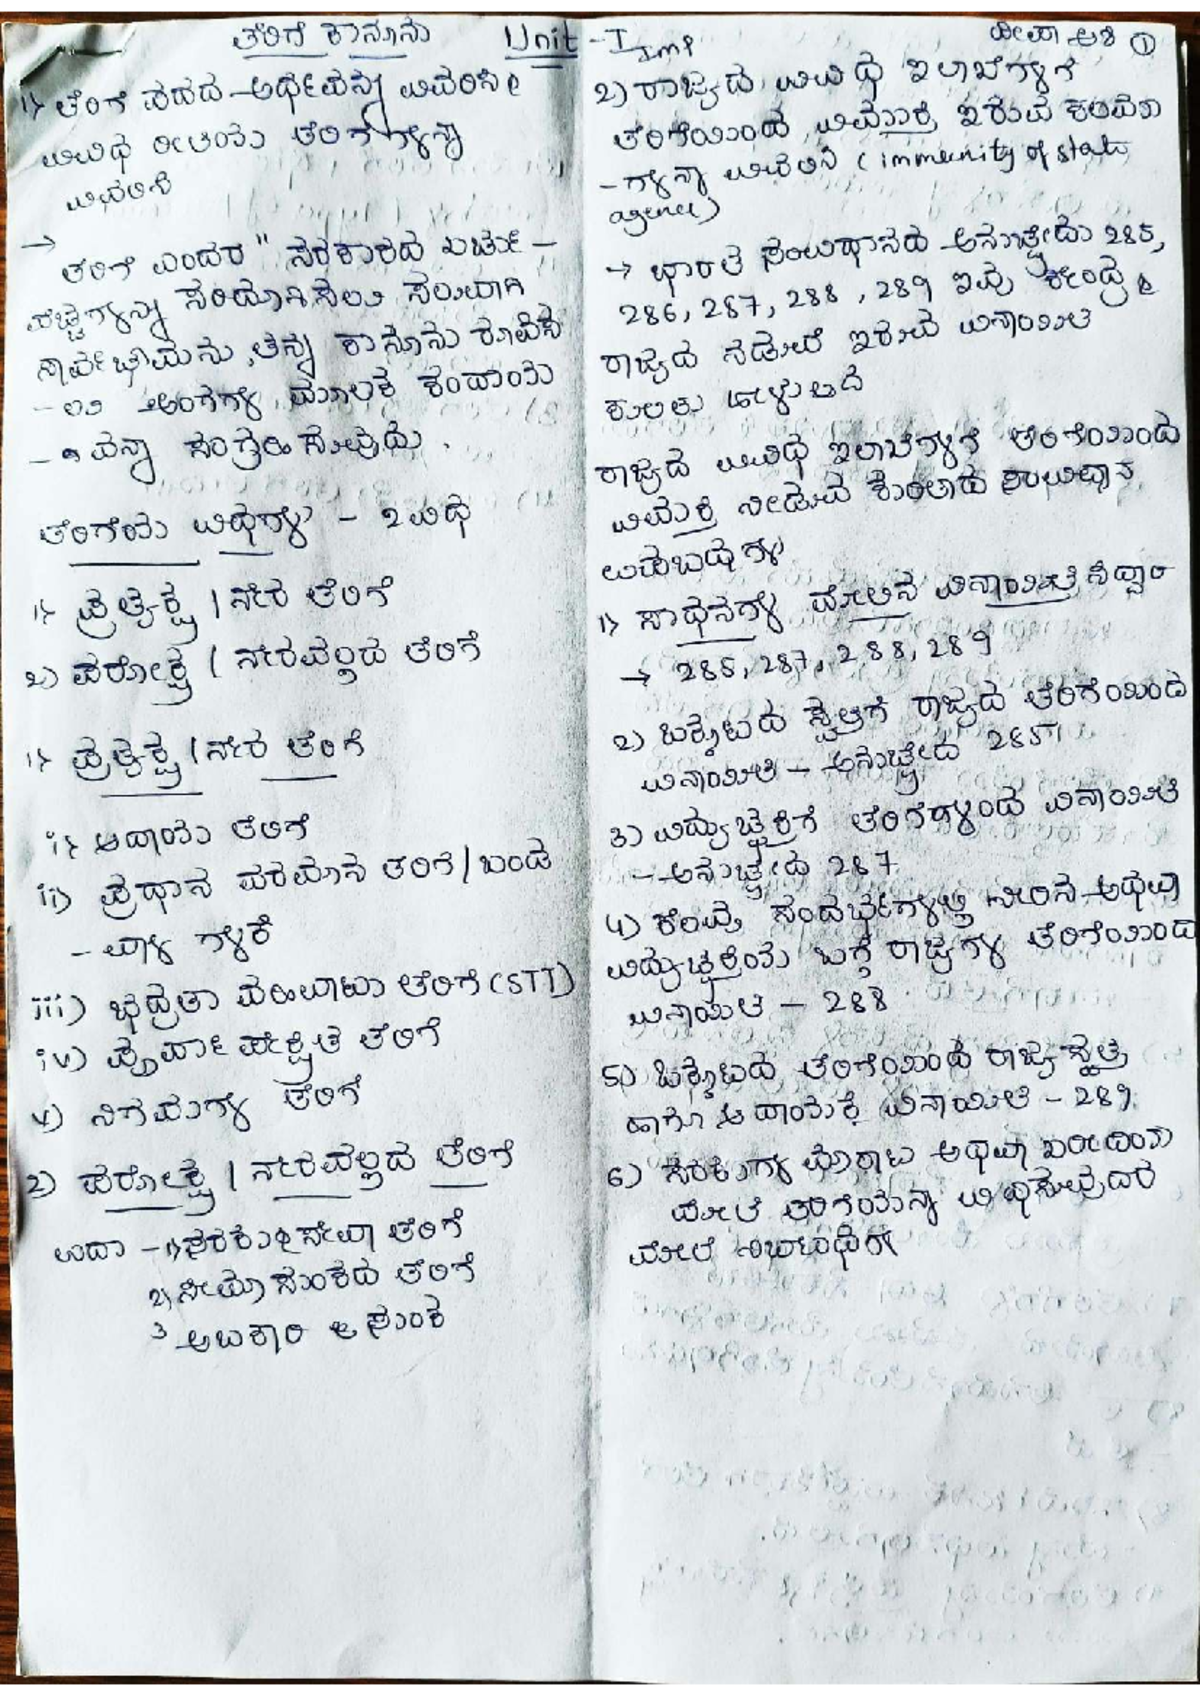 ತೆರಿಗೆ ಕಾನೂನು Unit - I
Imp
①
1) ತೆರಿಗೆ ಪದದ ಅರ್ಥವನ್ನು ವಿವರಿಸಿ
ವಿವಿಧ ರೀತಿಯ ತೆರಿಗೆಗಳನ್ನು
ವಿವರಿಸಿ
→
ತೆರಿಗೆ ಎಂದರೆ " ಸರಕಾರದ ಖರ್ಚು -
ವೆಚ್ಚಗಳನ್ನು ಸರಿಯೋಗಿಸಲು ಸಲುವಾಗಿ
ಸಾರ್ವಭೌಮನು, ತನ್ನ ಕಾನೂನು ರೂಪಿಸ
- ಲು ಅಂಗಗಳ ಮೂಲಕ ಕಂದಾಯ
- ವನ್ನು ಸಂಗ್ರಹಿಸುವುದು.
ತೆರಿಗೆಯ ವಿಧಗಳು - 2 ವಿಧ
1) ಪ್ರತ್ಯಕ್ಷ / ನೇರ ತೆರಿಗೆ
2) ಪರೋಕ್ಷ / ನೇರವಲ್ಲದ ತೆರಿಗೆ
1) ಪ್ರತ್ಯಕ್ಷ / ನೇರ ತೆರಿಗೆ
i) ಆದಾಯ ತೆರಿಗೆ
ii) ಪ್ರಧಾನ ವರಮಾನ ತೆರಿಗೆ / ಬಂಡ
- ವಾಳ ಗಳಿಕೆ
iii) ಭದ್ರತಾ ವಹಿವಾಟು ತೆರಿಗೆ (STT)
iv) ಪೂರ್ವಾಪೇಕ್ಷಿತ ತೆರಿಗೆ
v) ನಿಗಮಗಳ ತೆರಿಗೆ
2) ಪರೋಕ್ಷ / ನೇರವಲ್ಲದ ತೆರಿಗೆ
ಉದಾ - 1) ಸರಕು & ಸೇವಾ ತೆರಿಗೆ
2) ಸೀಮಾ ಸುಂಕದ ತೆರಿಗೆ
3 ಅಬಕಾರಿ ಸುಂಕ
2) ರಾಜ್ಯದ ವಿವಿಧ ಇಲಾಖೆಗಳಿಗೆ
ತೆರಿಗೆಯಿಂದ ವಿಮುಕ್ತಿ ಇರುವ
- ಗಳನ್ನು ವಿವರಿಸಿ (immunity of state
→ ಭಾರತ ಸಂವಿಧಾನದ ಅನುಚ್ಛೇದ 285,
286, 287, 288, 289 ಇವು ಕೇಂದ್ರ &
ರಾಜ್ಯದ ನಡುವೆ ಇರುವ ವಿನಾಯಿತಿ
ಕುರಿತು ಹೇಳುತ್ತದೆ
ರಾಜ್ಯದ ವಿವಿಧ ಇಲಾಖೆಗಳಿಗೆ ತೆರಿಗೆಯಿಂದ
ವಿಮುಕ್ತಿ ನೀಡುವ ಕುರಿತಾದ ಸಂವಿಧಾನ
ಉಪಬಂಧಗಳು
1) ಸಾಧನಗಳ ಮೇಲಿನ ವಿನಾಯಿತಿ ಸಿದ್ಧಾಂ
→ 285, 287, 288, 289
2) ಒಕ್ಕೂಟದ ಸ್ವತ್ತಿಗೆ ರಾಜ್ಯದ ತೆರಿಗೆಯಿಂದ
ವಿನಾಯಿತಿ - ಅನುಚ್ಛೇದ 285
3) ವಿದ್ಯುಚ್ಛಕ್ತಿಗೆ ತೆರಿಗೆಗಳಿಂದ ವಿನಾಯಿತಿ
- ಅನುಚ್ಛೇದ 287
4) ಕೆಲವು ಸಂದರ್ಭಗಳಲ್ಲಿ ನೀರಿನ ಅಥವಾ
ವಿದ್ಯುಚ್ಛಕ್ತಿಯ ಬಗ್ಗೆ ರಾಜ್ಯಗಳ ತೆರಿಗೆಯಿಂದ
ವಿನಾಯಿತಿ - 288
5) ಒಕ್ಕೂಟದ ತೆರಿಗೆಯಿಂದ ರಾಜ್ಯ ಸ್ವತ್ತು
ಹಾಗೂ ಆದಾಯಕ್ಕೆ ವಿನಾಯಿತಿ - 289
6) ಸರಕುಗಳ ಮಾರಾಟ ಅಥವಾ ಖರೀದಿಯ
ಮೇಲೆ ತೆರಿಗೆಯನ್ನು ವಿಧಿಸುವುದರ
ಮೇಲೆ ನಿರ್ಬಂಧಗಳು